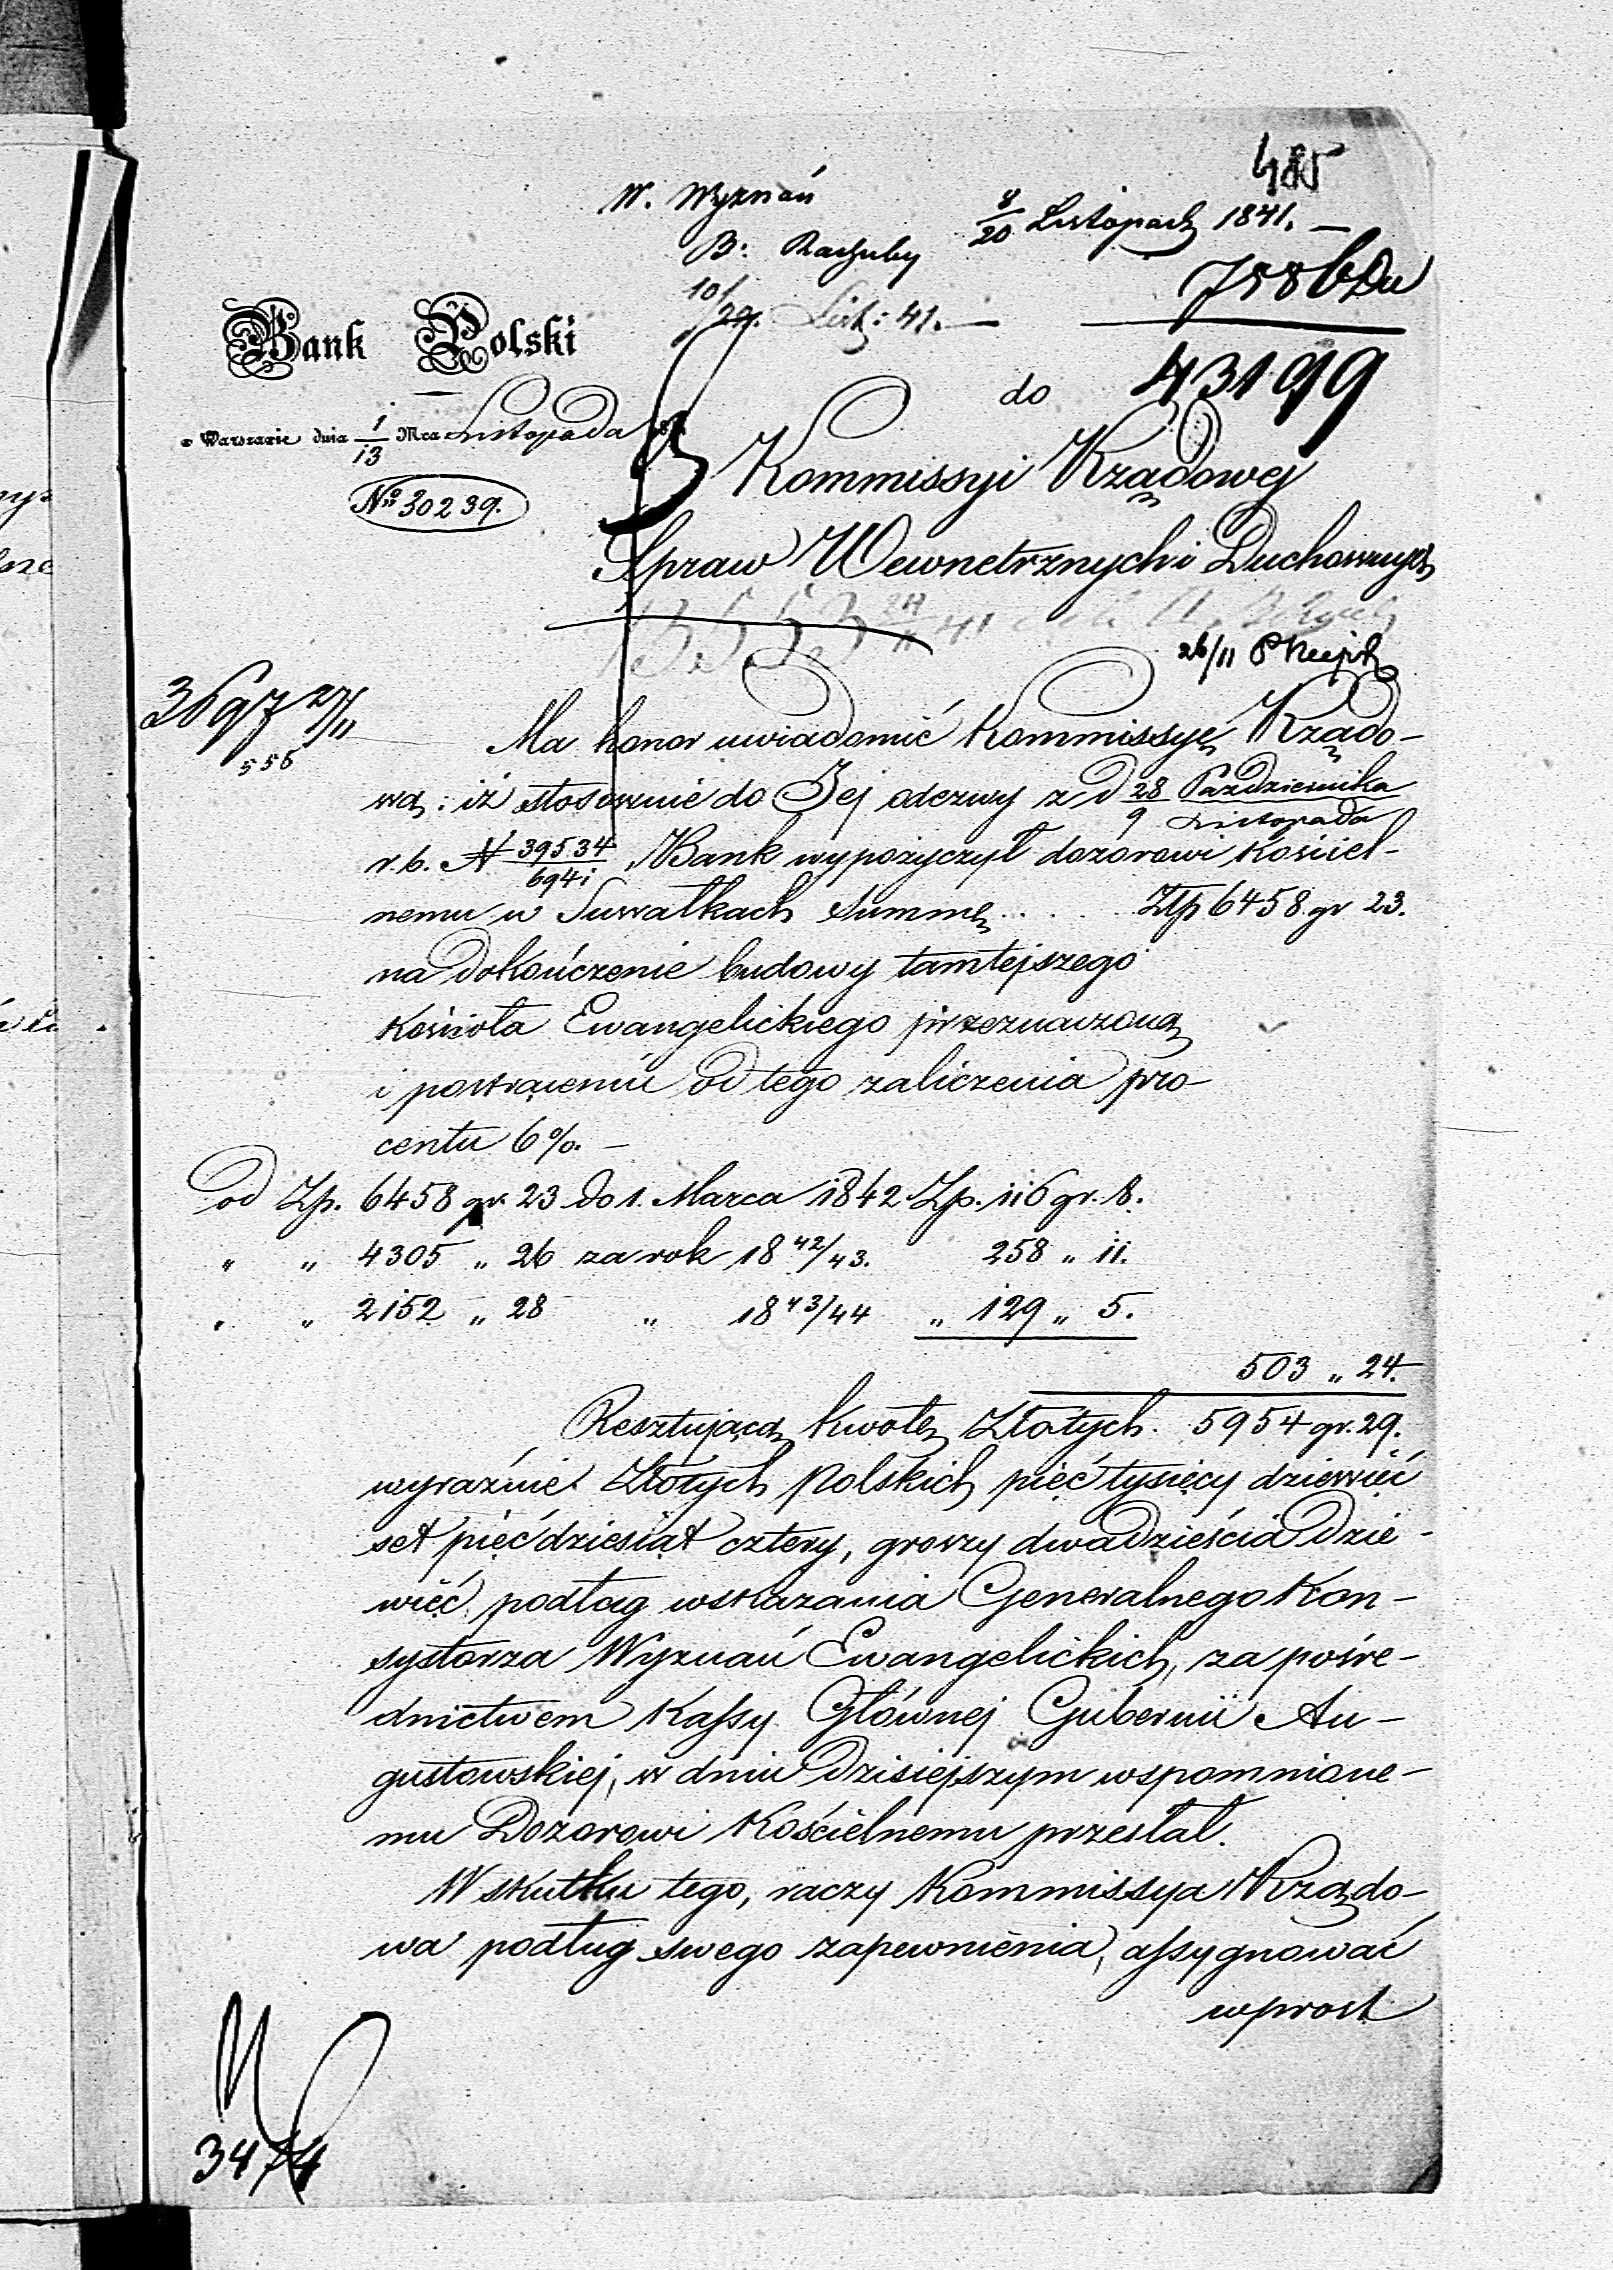 485
W. Wyznań
8/20 Listopada 1841. —
B: Rachuby
7586
10/22. List: 41. —
Bank Polski
do
43199
w Warszawie dnia 1/13 Mca Listopada 184
Kommissyi Rządowej
No 30239.
Spraw Wewnetrznych i Duchownych
13553 24/11 41
26/11
3697 27/11
556
Ma honor uwiadomić Kommissyę Rządo-
wą: iż stosownie do Jej odezwy z d 28 Pazdziernika / 9 Listopada
r. b. N 39534/6941 Bank wypożyczył dozorowi Kościel-
nemu w Suwałkach summę .. . . Złp 6458 gr 23.
na dokończenie budowy tamtejszego
Kościoła Ewangelickiego przeznaczoną
i potrąceniu od tego zaliczenia pro-
centu 6%. —
od Zp. 6458 gr. 23 do 1. Marca 1842 Zp. 116 gr. 8.
" " 4305 " 26 za rok 18 42/43. 258 " 11.
" " 2152 " 28 " 18 43/44 " 129 " 5.
503 " 24.
Resztującą kwotę Złotych. 5954 gr. 29.
wyraźnie Złotych polskich pięć tysięcy dziewięć
set pięćdziesiąt cztery, groszy dwadzieścia dzie-
więć, podług wskazania Generalnego Kon-
systorza Wyznań Ewangelickich, za pośre-
dnictwem Kassy Głównej Gubernii Au-
gustowskiej, w dniu dzisiejszym wspomnione-
mu Dozorowi Kościelnemu przesłał.
W skutku tego, raczy Kommissya Rządo-
wa podług swego zapewnienia, assygnować
wprost
3474